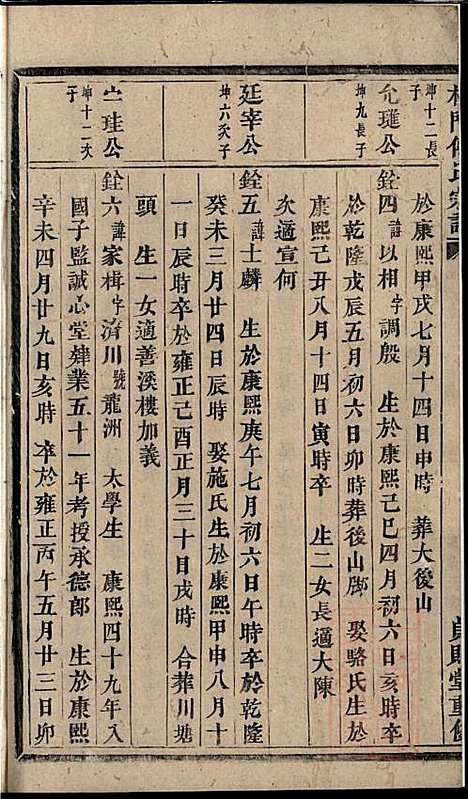 坤十二長子
於康熙甲戌七月十四日申時　葬大後山
坤九長子
允璡公
銓四　諱以相　字調殷　生於康熙己巳四月初六日亥時卒
於乾隆戊辰五月初六日卯時葬後山脚　娶駱氏生於
康熙己丑八月十四日寅時卒　生二女長適大陳
次適宣何
坤六次子
廷宰公
銓五　諱士麟　生於康熙庚午七月初六日午時卒於乾隆
癸未三月廿四日辰時　娶施氏生於康熙甲申八月十
一日辰時卒於雍正己酉正月三十日戌時　合葬川塘
頭　生一女適善溪樓加義
坤十二次子
珪公
銓六　諱家楫　字濟川　號龍洲　太學生　康熙四十九年入
國子監誠心堂肄業五十一年考授承德郎　生於康熙
辛未四月廿九日亥時　卒於雍正丙午五月廿三日卯